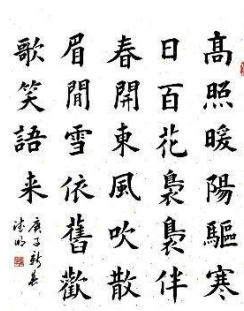 髙照暖陽驅寒
日百花裊裊伴
春開東風吹散
眉閒雪依舊歡
歌笑語来
庚子新春